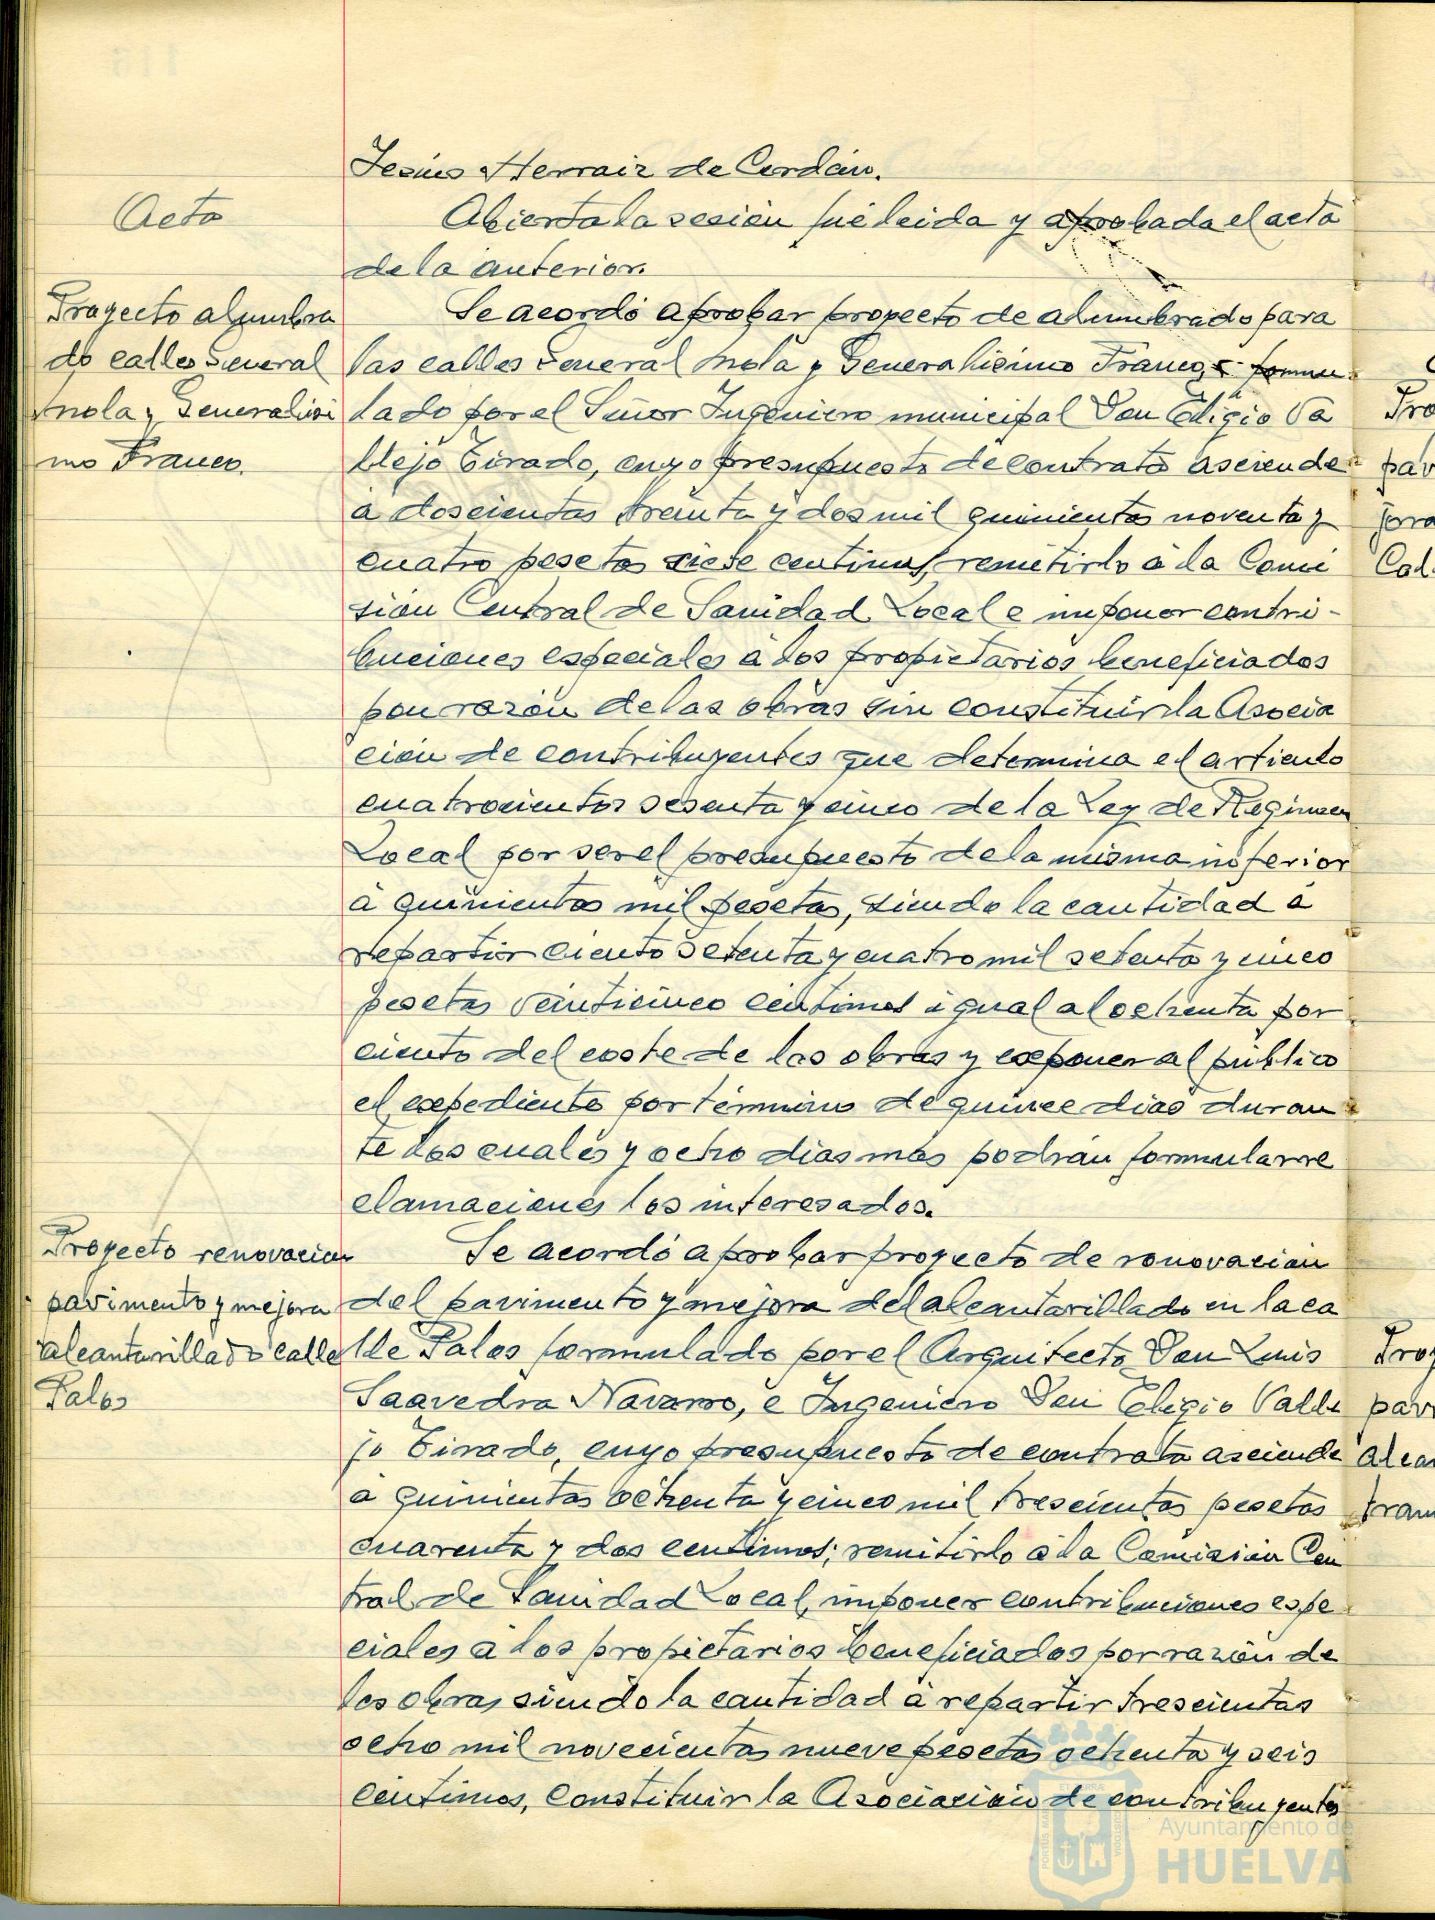 Jesús Herraiz de Cerdán.
Acta
Abierta la sesión fué leida y aprobada el acta
de la anterior.
Proyecto alumbra
do calles General
Mola y Generalisi
mo Franco.
Se acordó aprobar proyecto de alumbrado para
las calles General Mola y Generalisimo Franco, formu
lado por el Señor Ingeniero municipal Don Eligio Va
llejo Tirado, cuyo presupuesto de contrata asciende
á doscientas treinta y dos mil quinientas noventa y
cuatro pesetas siete centimos, remitirlo á la Comi
sión Central de Sanidad Local e imponer contri-
buciones especiales á los propietarios beneficiados
por razón de las obras sin constituir la Asocia
ción de contribuyentes que determina el articulo
cuatrocientos sesenta y cinco de la Ley de Regimen
Local por ser el presupuesto de la misma inferior
á quinientas mil pesetas, siendo la cantidad á
repartir ciento setenta y cuatro mil setenta y cinco
pesetas veinticinco céntimos igual al ochenta por
ciento del coste de las obras y exponer al público
el expediente por término de quince dias duran
te los cuales y ocho dias más podrán formular re
clamaciones los interesados.
Proyecto renovacion
pavimento y mejora
alcantarillado calle
Palos
Se acordó aprobar proyecto de renovación
del pavimento y mejora del alcantarillado en la ca
lle Palos formulado por el Arquitecto Don Luis
Saavedra Navarro, e Ingeniero Don Eligio Valle
jo Tirado, cuyo presupuesto de contrata asciende
á quinientas ochenta y cinco mil trescientas pesetas
cuarenta y dos centimos; remitirlo á la Comisión Cen
tral de Sanidad Local, imponer contribuciones espe
ciales á los propietarios beneficiados por razón de
las obras siendo la cantidad á repartir trescientas
ocho mil novecientas nueve pesetas ochenta y seis
centimos, constituir la Asociación de contribuyentes
Pro
pav
jora
Cal
Proy
pavi
alcan
tram
Ayuntamiento de
HUELVA